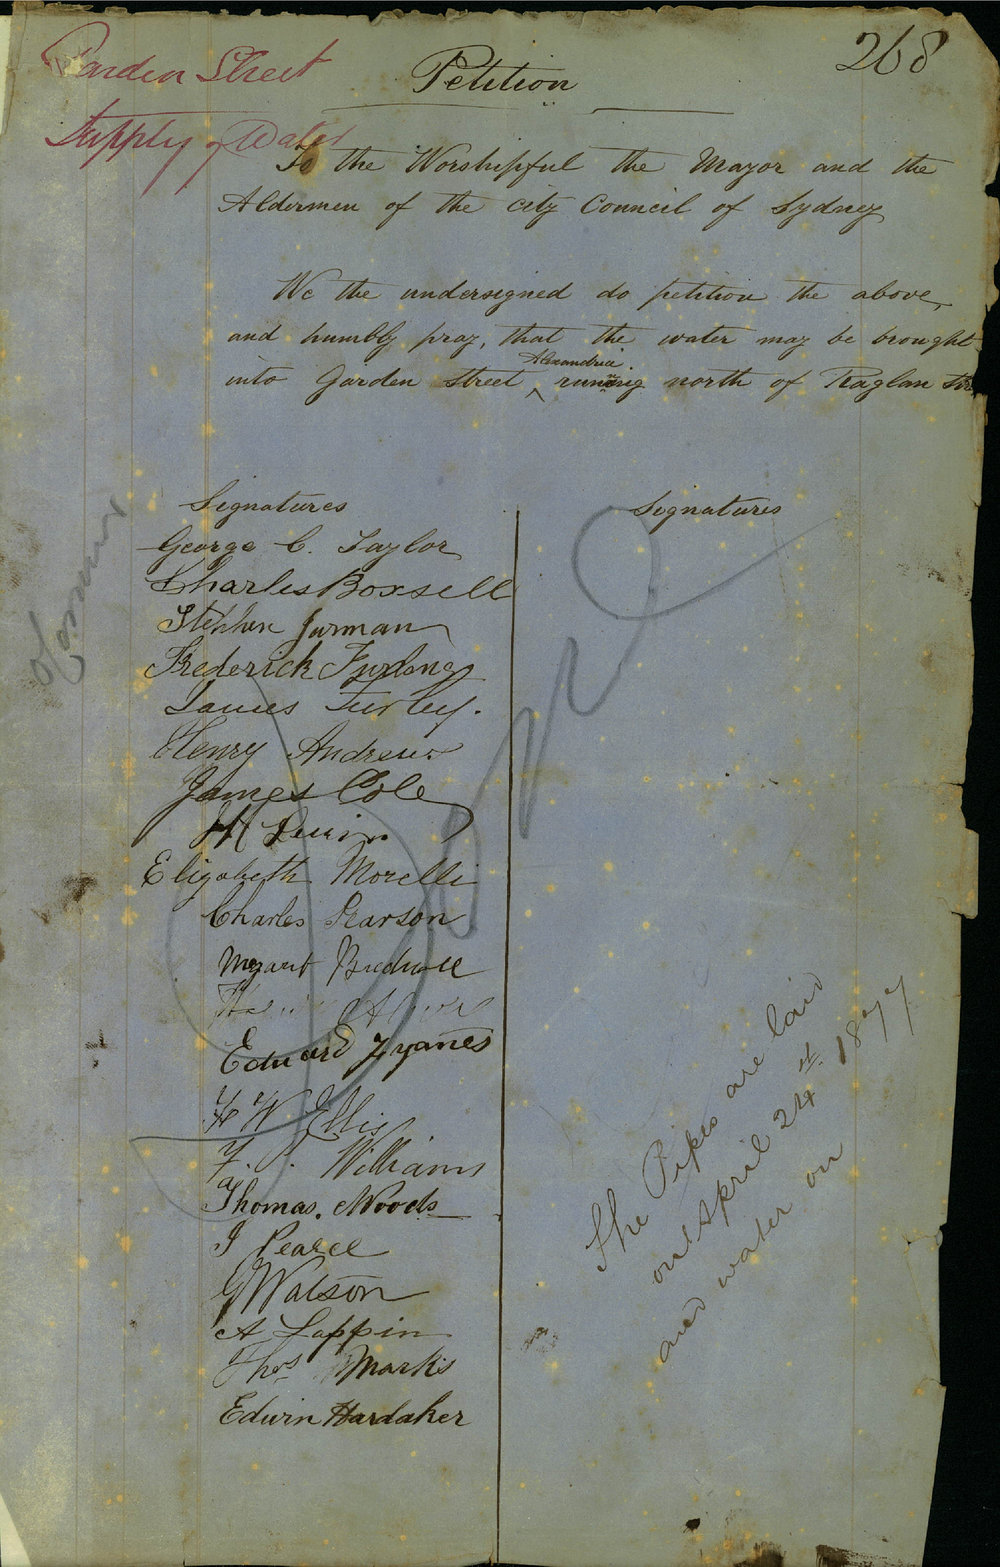 Garden Street
Supply of Water
268
Petition
To the Worshipful the Mayor and the
Aldermen of the city Council of Sydney
We the undersigned do petition the above,
and humbly pray, that the water may be brought
Alexandria.
into Garden Street ^ running north of Raglan
Signatures
Signatures
George C. Taylor
Charles Boxsell
Stephen Jurman
Frederick Furlong
James Turley.
Henry Andrews
James Cole
H
Elizabeth Morelli
Charles Pearson
Mozart
Edward
W Ellis
F. Williams
Thomas. Woods
J Pearce
G Watson
A Lappin
Thos Marks
Edwin Hardaker
Done
The Pipes are laid
on April 24th. 1877
and water on